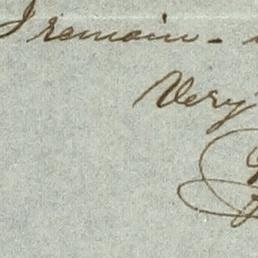 I remain -
Very